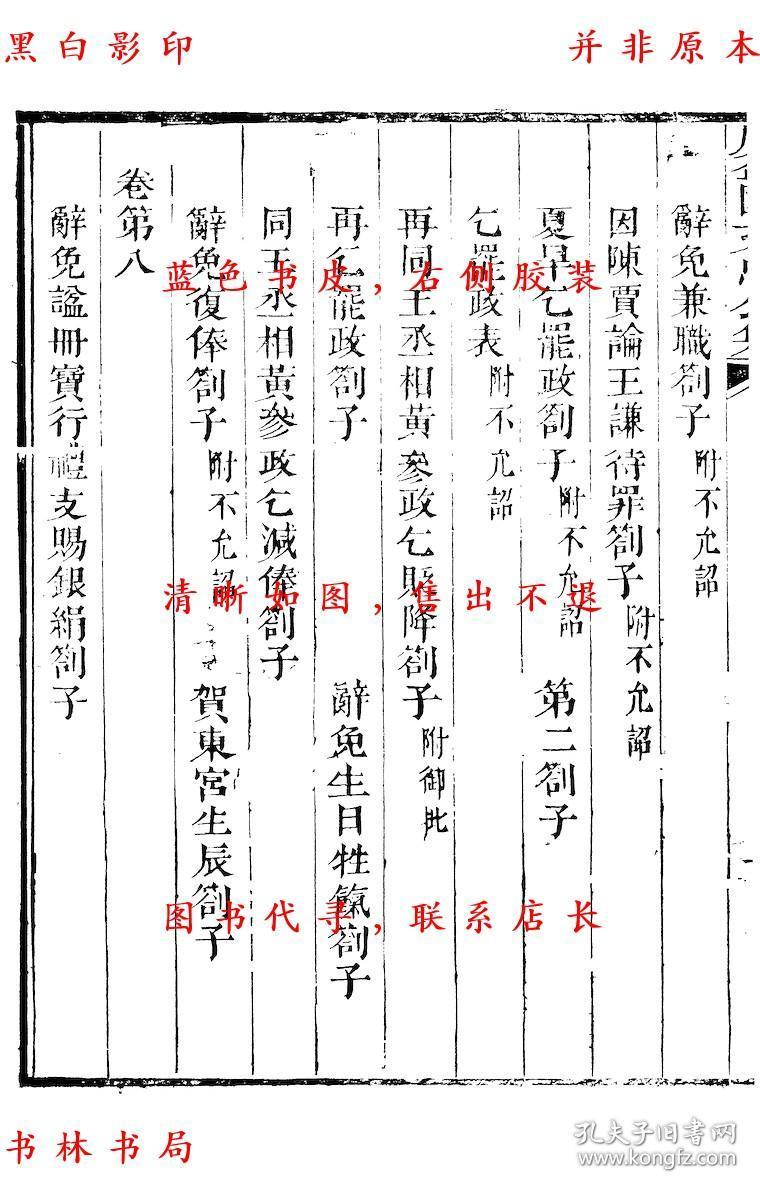 黑白影印
并非原本
辭免兼職劄子 附不允詔
因陳賈論王謙待罪劄子 附不允詔
夏旱乞罷政劄子 附不允詔 第二劄子
乞罷政表 附不允詔
再同王丞相黃參政乞貶降劄子 附御批
再乞罷政劄子 辭免生日牲餼劄子
同王丞相黃參政乞減俸劄子
辭免復俸劄子 附不允詔 賀東宮生辰劄子
卷第八
辭免諡冊寶行禮支賜銀絹劄子
蓝色书皮,右侧胶装
清晰如图,售出不退
图书代寻,联系店长
书林书局
孔夫子旧书网
www.kongfz.com